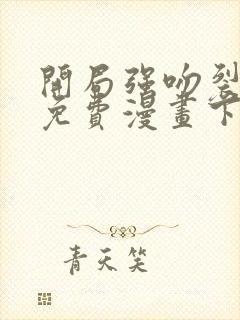 開局強吻裂
免費漫畫下
青天笑